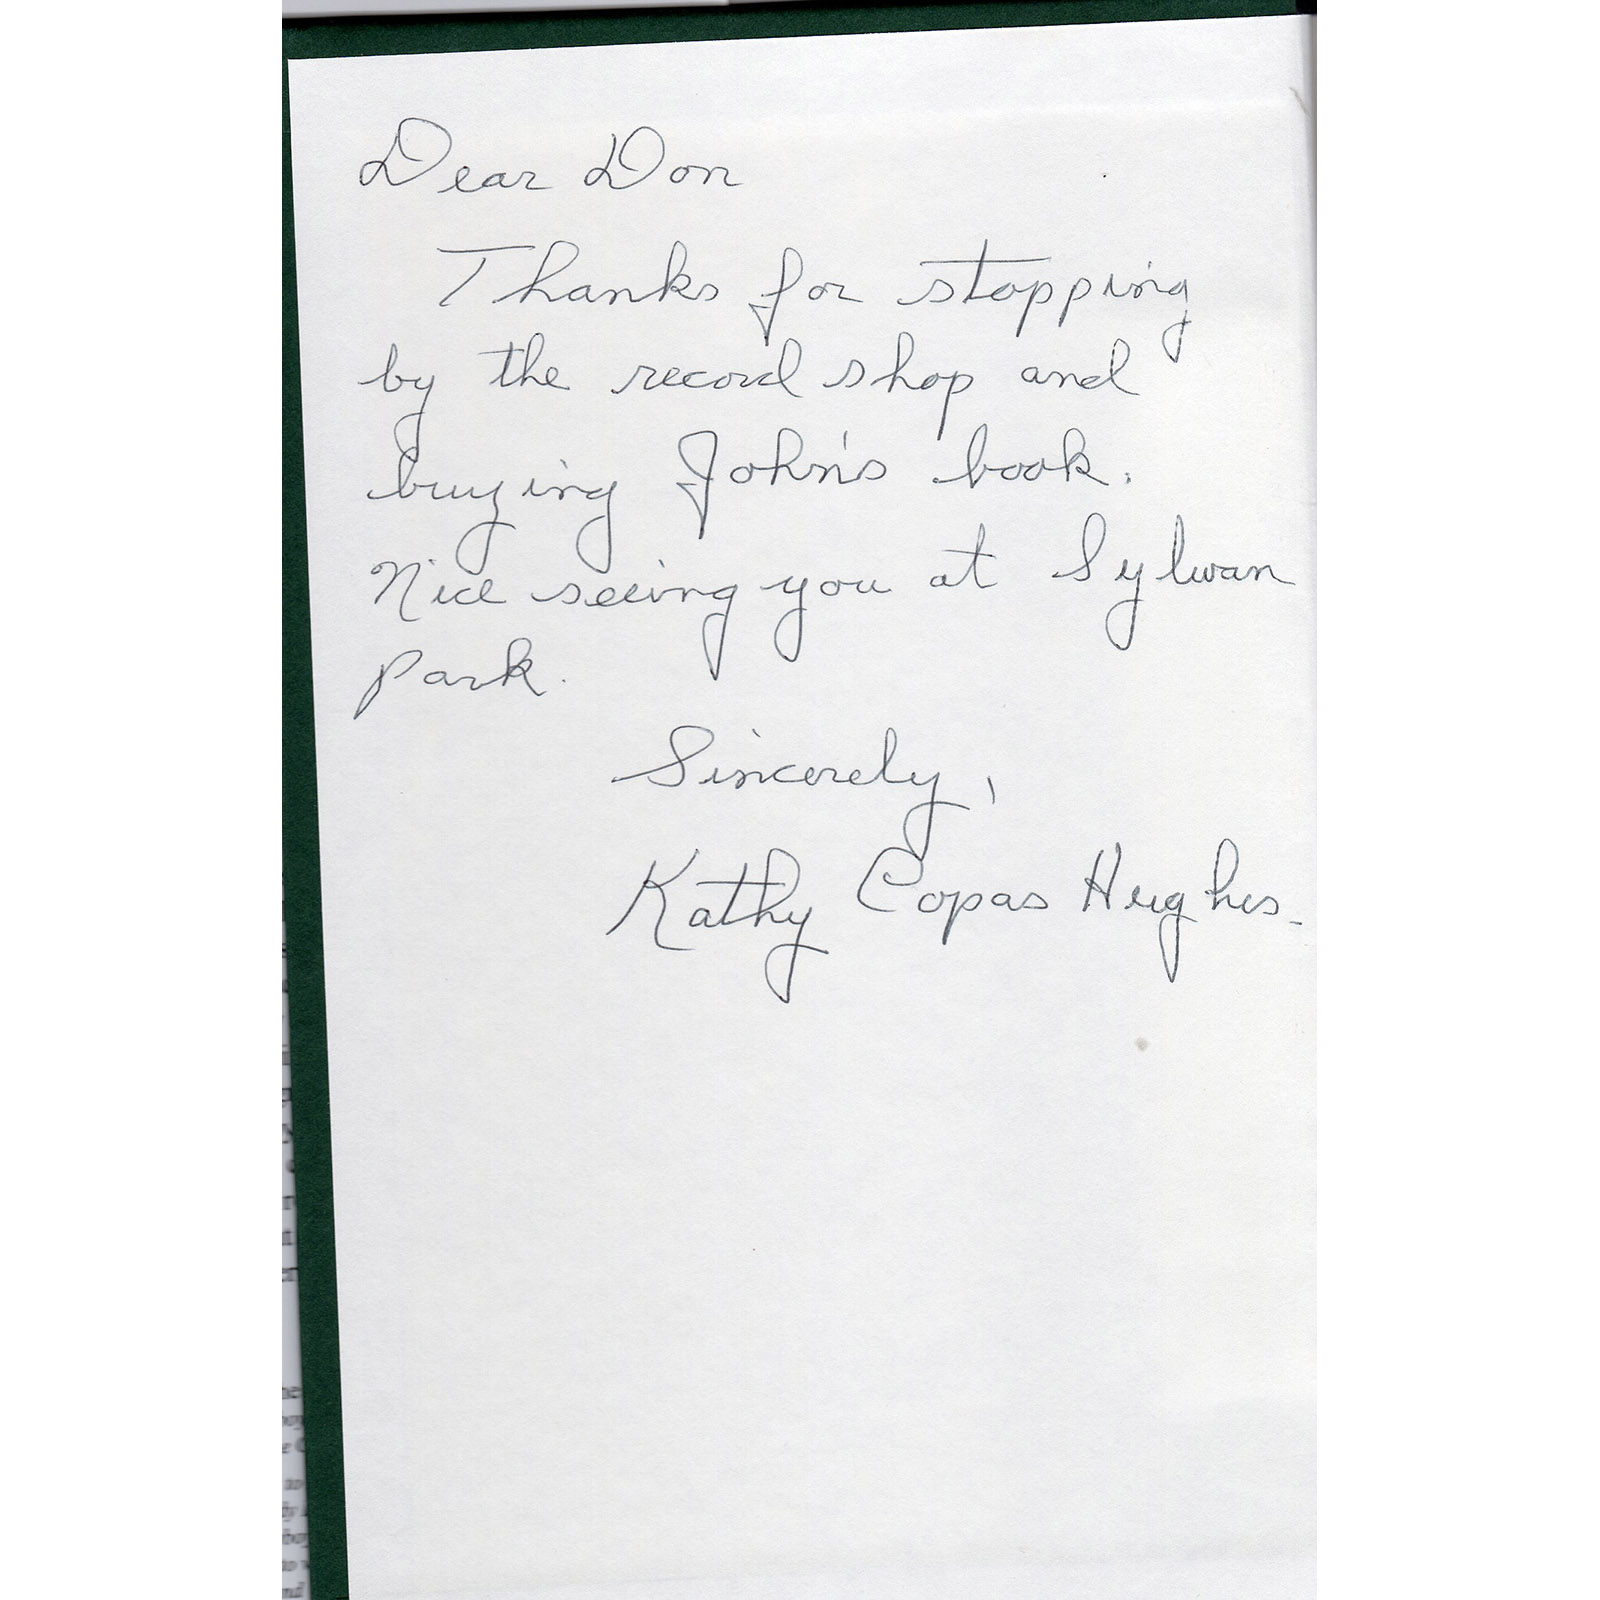 Dear Don
Thanks for stopping
by the record shop and
buying John's book.
Nice seeing you at Sylvan
Park.
Sincerely,
Kathy Copas Hughes